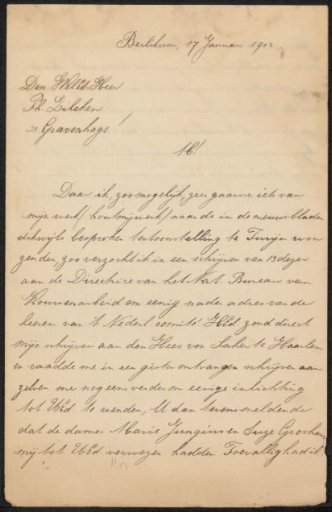 Berlikum, 17 Januari 1902
Den WelEd. Heer
Ph. Zilcken
's Gravenhage!
M!
Daar ik, zoo mogelijk, zeer gaarne iets van
mijn werk (houtsnijwerk) aan de in de nieuwsbladen
dikwijls besproken tentoonstelling te Turijn won
zenden, zoo verzocht ik in een schrijven van 13 dezer
aan de Directrice van het Nat. Bureau van
Vrouwenarbeid om eenig nader adres van de
heeren van 't Nederl. comité. HEd. zond direct
mijn schrijven aan den Heer von Saher te Haarlem
en raadde me in een gister ontvangen schrijven aan
me nog eens verder om eenige inlichting
tot UEd. te wenden, U dan tevens meldende
dat de dames Marie Jungius en Suze Groshans
mij tot UEd. verwezen hadden. Toevallig had ik